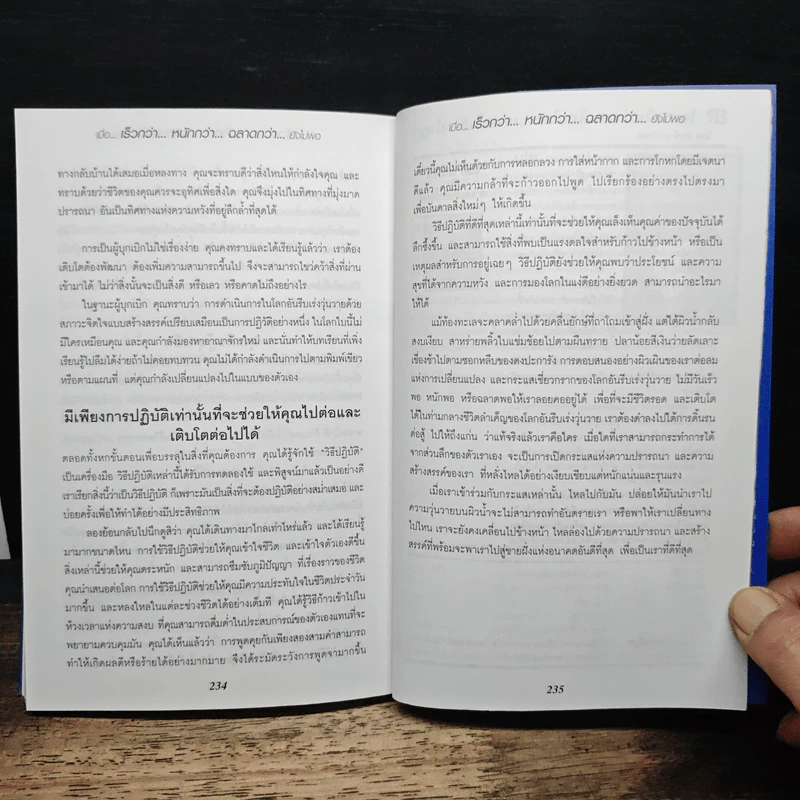 เมื่อ... เร็วกว่า... หนักกว่า... ฉลาดกว่า... ยังไม่พอ
ทางกลับบ้านได้เสมอเมื่อหลงทาง คุณจะทราบดีว่าสิ่งไหนให้กำลังใจคุณ และ
ทราบด้วยว่าชีวิตของคุณควรจะอุทิศเพื่อสิ่งใด คุณจึงมุ่งไปในทิศทางที่มุ่งมาด
ปรารถนา อันเป็นทิศทางแห่งความหวังที่อยู่ลึกล้ำที่สุดได้
การเป็นผู้บุกเบิกไม่ใช่เรื่องง่าย คุณคงทราบและได้เรียนรู้แล้วว่า เราต้อง
เติบโตต้องพัฒนา ต้องเพิ่มความสามารถขึ้นไป จึงจะสามารถไขว่คว้าสิ่งที่ผ่าน
เข้ามาได้ ไม่ว่าสิ่งนั้นจะเป็นสิ่งดี หรือเลว หรือคาดไม่ถึงอย่างไร
ในฐานะผู้บุกเบิก คุณทราบว่า การดำเนินการในโลกอันรีบเร่งวุ่นวายด้วย
สภาวะจิตใจแบบสร้างสรรค์เปรียบเสมือนเป็นการปฏิวัติอย่างหนึ่ง ในโลกใบนี้ไม่
มีใครเหมือนคุณ และคุณกำลังมองหาอาณาจักรใหม่ และนั่นทำให้บทเรียนที่เพิ่ง
เรียนรู้ไปลืมได้ง่ายถ้าไม่คอยทบทวน คุณไม่ได้กำลังดำเนินการไปตามพิมพ์เขียว
หรือตามแผนที่ แต่คุณกำลังเปลี่ยนแปลงไปในแบบของตัวเอง
มีเพียงการปฏิบัติเท่านั้นที่จะช่วยให้คุณไปต่อและ
เติบโตต่อไปได้
ตลอดทั้งหกขั้นตอนเพื่อบรรลุในสิ่งที่คุณต้องการ คุณได้รู้จักใช้ "วิธีปฏิบัติ"
เป็นเครื่องมือ วิธีปฏิบัติเหล่านี้ได้รับการทดลองใช้ และพิสูจน์มาแล้วเป็นอย่างดี
เราเรียกสิ่งนี้ว่าเป็นวิธีปฏิบัติ ก็เพราะมันเป็นสิ่งที่จะต้องปฏิบัติอย่างสม่ำเสมอ และ
บ่อยครั้งเพื่อให้ทำได้อย่างมีประสิทธิภาพ
ลองย้อนกลับไปนึกดูสิว่า คุณได้เดินทางมาไกลเท่าไหร่แล้ว และได้เรียนรู้
มามากขนาดไหน การใช้วิธีปฏิบัติช่วยให้คุณเข้าใจชีวิต และเข้าใจตัวเองดีขึ้น
สิ่งเหล่านี้ช่วยให้คุณตระหนัก และสามารถซึมซับภูมิปัญญา ที่เรื่องราวของชีวิต
คุณนำเสนอต่อโลก การใช้วิธีปฏิบัติช่วยให้คุณมีความประทับใจในชีวิตประจำวัน
มากขึ้น และหลงใหลในแต่ละช่วงชีวิตได้อย่างเต็มที่ คุณได้รู้วิธีก้าวเข้าไปใน
ห้วงเวลาแห่งความสงบ ที่คุณสามารถดื่มด่ำในประสบการณ์ของตัวเองแทนที่จะ
พยายามควบคุมมัน คุณได้เห็นแล้วว่า การพูดคุยกันเพียงสองสามคำสามารถ
ทำให้เกิดผลดีหรือร้ายได้อย่างมากมาย จึงได้ระมัดระวังการพูดจามากขึ้น
234
เมื่อ... เร็วกว่า... หนักกว่า... ฉลาดกว่า... ยังไม่พอ
เดี๋ยวนี้คุณไม่เห็นด้วยกับการหลอกลวง การใส่หน้ากาก และการโกหกโดยมีเจตนา
ดีแล้ว คุณมีความกล้าที่จะก้าวออกไปพูด ไปเรียกร้องอย่างตรงไปตรงมา
เพื่อบันดาลสิ่งใหม่ๆ ให้เกิดขึ้น
วิธีปฏิบัติที่ดีที่สุดเหล่านี้เท่านั้นที่จะช่วยให้คุณเล็งเห็นคุณค่าของปัจจุบันได้
ลึกซึ้งขึ้น และสามารถใช้สิ่งที่พบเป็นแรงดลใจสำหรับก้าวไปข้างหน้า หรือเป็น
เหตุผลสำหรับการอยู่เฉยๆ วิธีปฏิบัติยังช่วยให้คุณพบว่าประโยชน์ และความ
สุขที่ได้จากความหวัง และการมองโลกในแง่ดีอย่างยิ่งยวด สามารถนำอะไรมา
ให้ได้
แม้ท้องทะเลจะคลาคล่ำไปด้วยคลื่นยักษ์ที่ถาโถมเข้าสู่ฝั่ง แต่ใต้ผิวน้ำกลับ
สงบเงียบ สาหร่ายพลิ้วใบแช่มช้อยไปตามผืนทราย ปลาน้อยสีเงินว่ายลัดเลาะ
เชื่องช้าไปตามซอกหลืบของดงปะการัง การตอบสนองอย่างผิวเผินของเราต่อลม
แห่งการเปลี่ยนแปลง และกระแสเชี่ยวกรากของโลกอันรีบเร่งวุ่นวาย ไม่มีวันเร็ว
พอ หนักพอ หรือฉลาดพอให้เราลอยคออยู่ได้ เพื่อที่จะมีชีวิตรอด และเติบโต
ได้ในท่ามกลางชีวิตลำเค็ญของโลกอันรีบเร่งวุ่นวาย เราต้องดำลงไปใต้การดิ้นรน
ต่อสู้ ไปให้ถึงแก่น ว่าแท้จริงแล้วเราคือใคร เมื่อใดที่เราสามารถกระทำการได้
จากส่วนลึกของตัวเราเอง จะเป็นการเปิดกระแสแห่งความปรารถนา และความ
สร้างสรรค์ของเรา ที่หลั่งไหลได้อย่างเงียบเชียบแต่หนักแน่นและรุนแรง
เมื่อเราเข้าร่วมกับกระแสเหล่านั้น ไหลไปกับมัน ปล่อยให้มันนำเราไป
ความวุ่นวายบนผิวน้ำจะไม่สามารถทำอันตรายเรา หรือพาให้เราเปลี่ยนทาง
ไปไหน เราจะยังคงเคลื่อนไปข้างหน้า ไหลล่องไปด้วยความปรารถนา และสร้าง
สรรค์ที่พร้อมจะพาเราไปสู่ชายฝั่งแห่งอนาคตอันดีที่สุด เพื่อเป็นเราที่ดีที่สุด
235